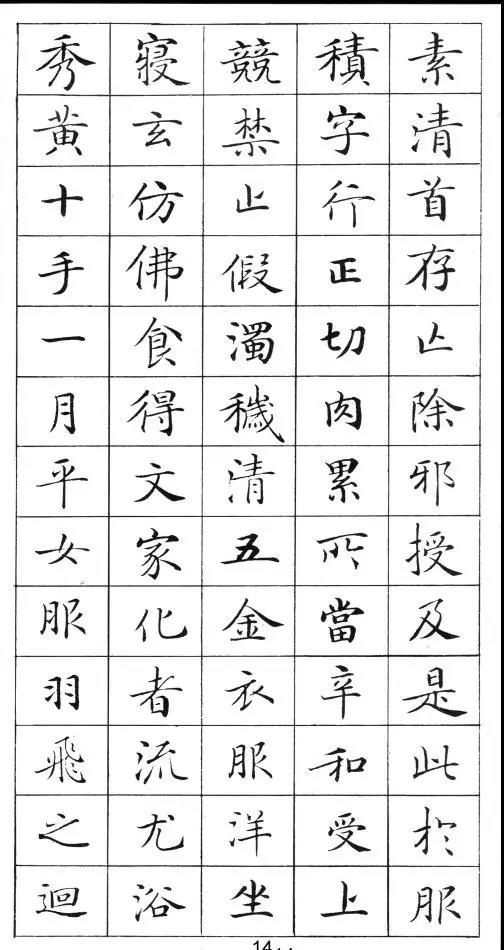 素清首存亡除邪授及是此於服
積字行正切肉累所當辛和受上
競禁止假濁穢清五金衣服洋坐
寢玄仿佛食得文家化者流尤浴
秀黄十手一月平女服羽飛之迴
14